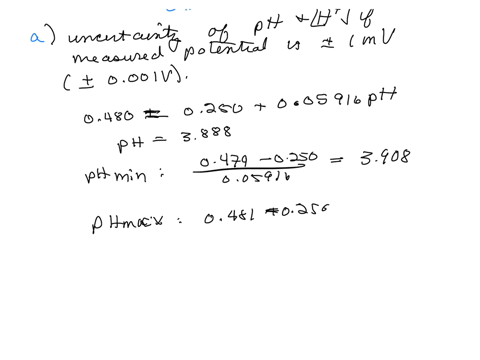 a) uncertainty of pH & [H⁺] if
measured potential is ± 1 mV
(± 0.001V).
0.480 = 0.250 + 0.05916 pH
pH = 3.888
pH min : 0.479 - 0.250 / 0.05916 = 3.908
pH max : 0.481 - 0.250